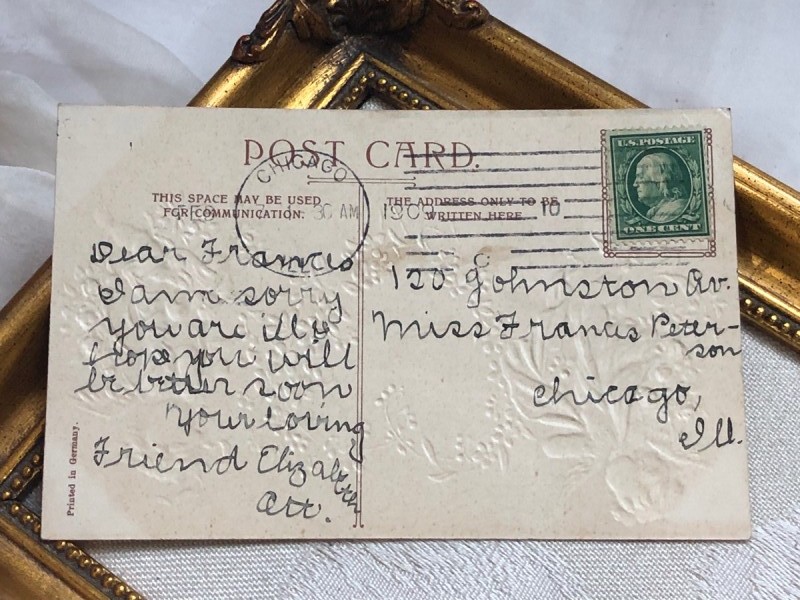 POST CARD.
CHICAGO
THIS SPACE MAY BE USED
FOR COMMUNICATION.
THE ADDRESS ONLY TO BE
WRITTEN HERE
30 AM
10
U.S. POSTAGE
ONE CENT
Dear Frances
I am sorry
you are ill &
hope you will
be better soon
Your loving
Friend Elizabeth
Ott.
120 Johnston Av.
Miss Francis Peter-
son
Chicago,
Ill.
Printed in Germany.